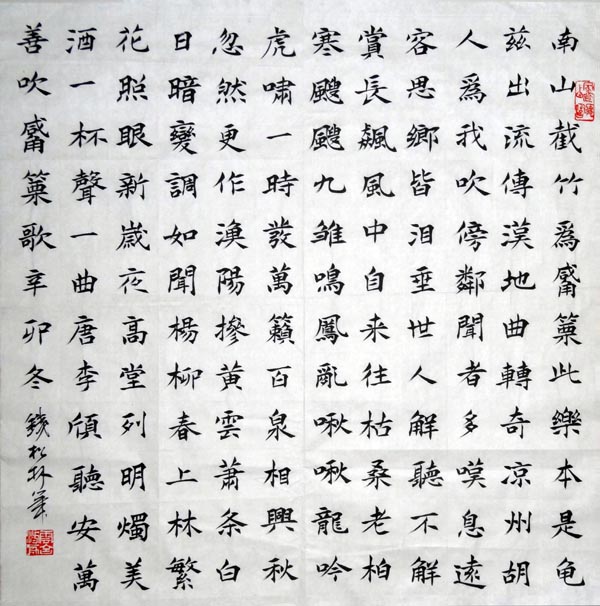 南山截竹爲觱篥此樂本是龜
兹出流傳漠地曲轉奇凉州胡
人爲我吹傍鄰聞者多嘆息遠
容思鄉皆泪垂世人解聽不解
賞長飆風中自来往枯桑老柏
寒颼颼九雛鳴鳳亂啾啾龍吟
虎嘯一時發萬籟百泉相興秋
忽然更作漁陽摻黄雲蕭条白
日暗變調如聞楊柳春上林繁
花照眼新歲夜高堂列明燭美
酒一杯聲一曲唐李頎聽安萬
善吹觱篥歌辛卯冬錢松林筆